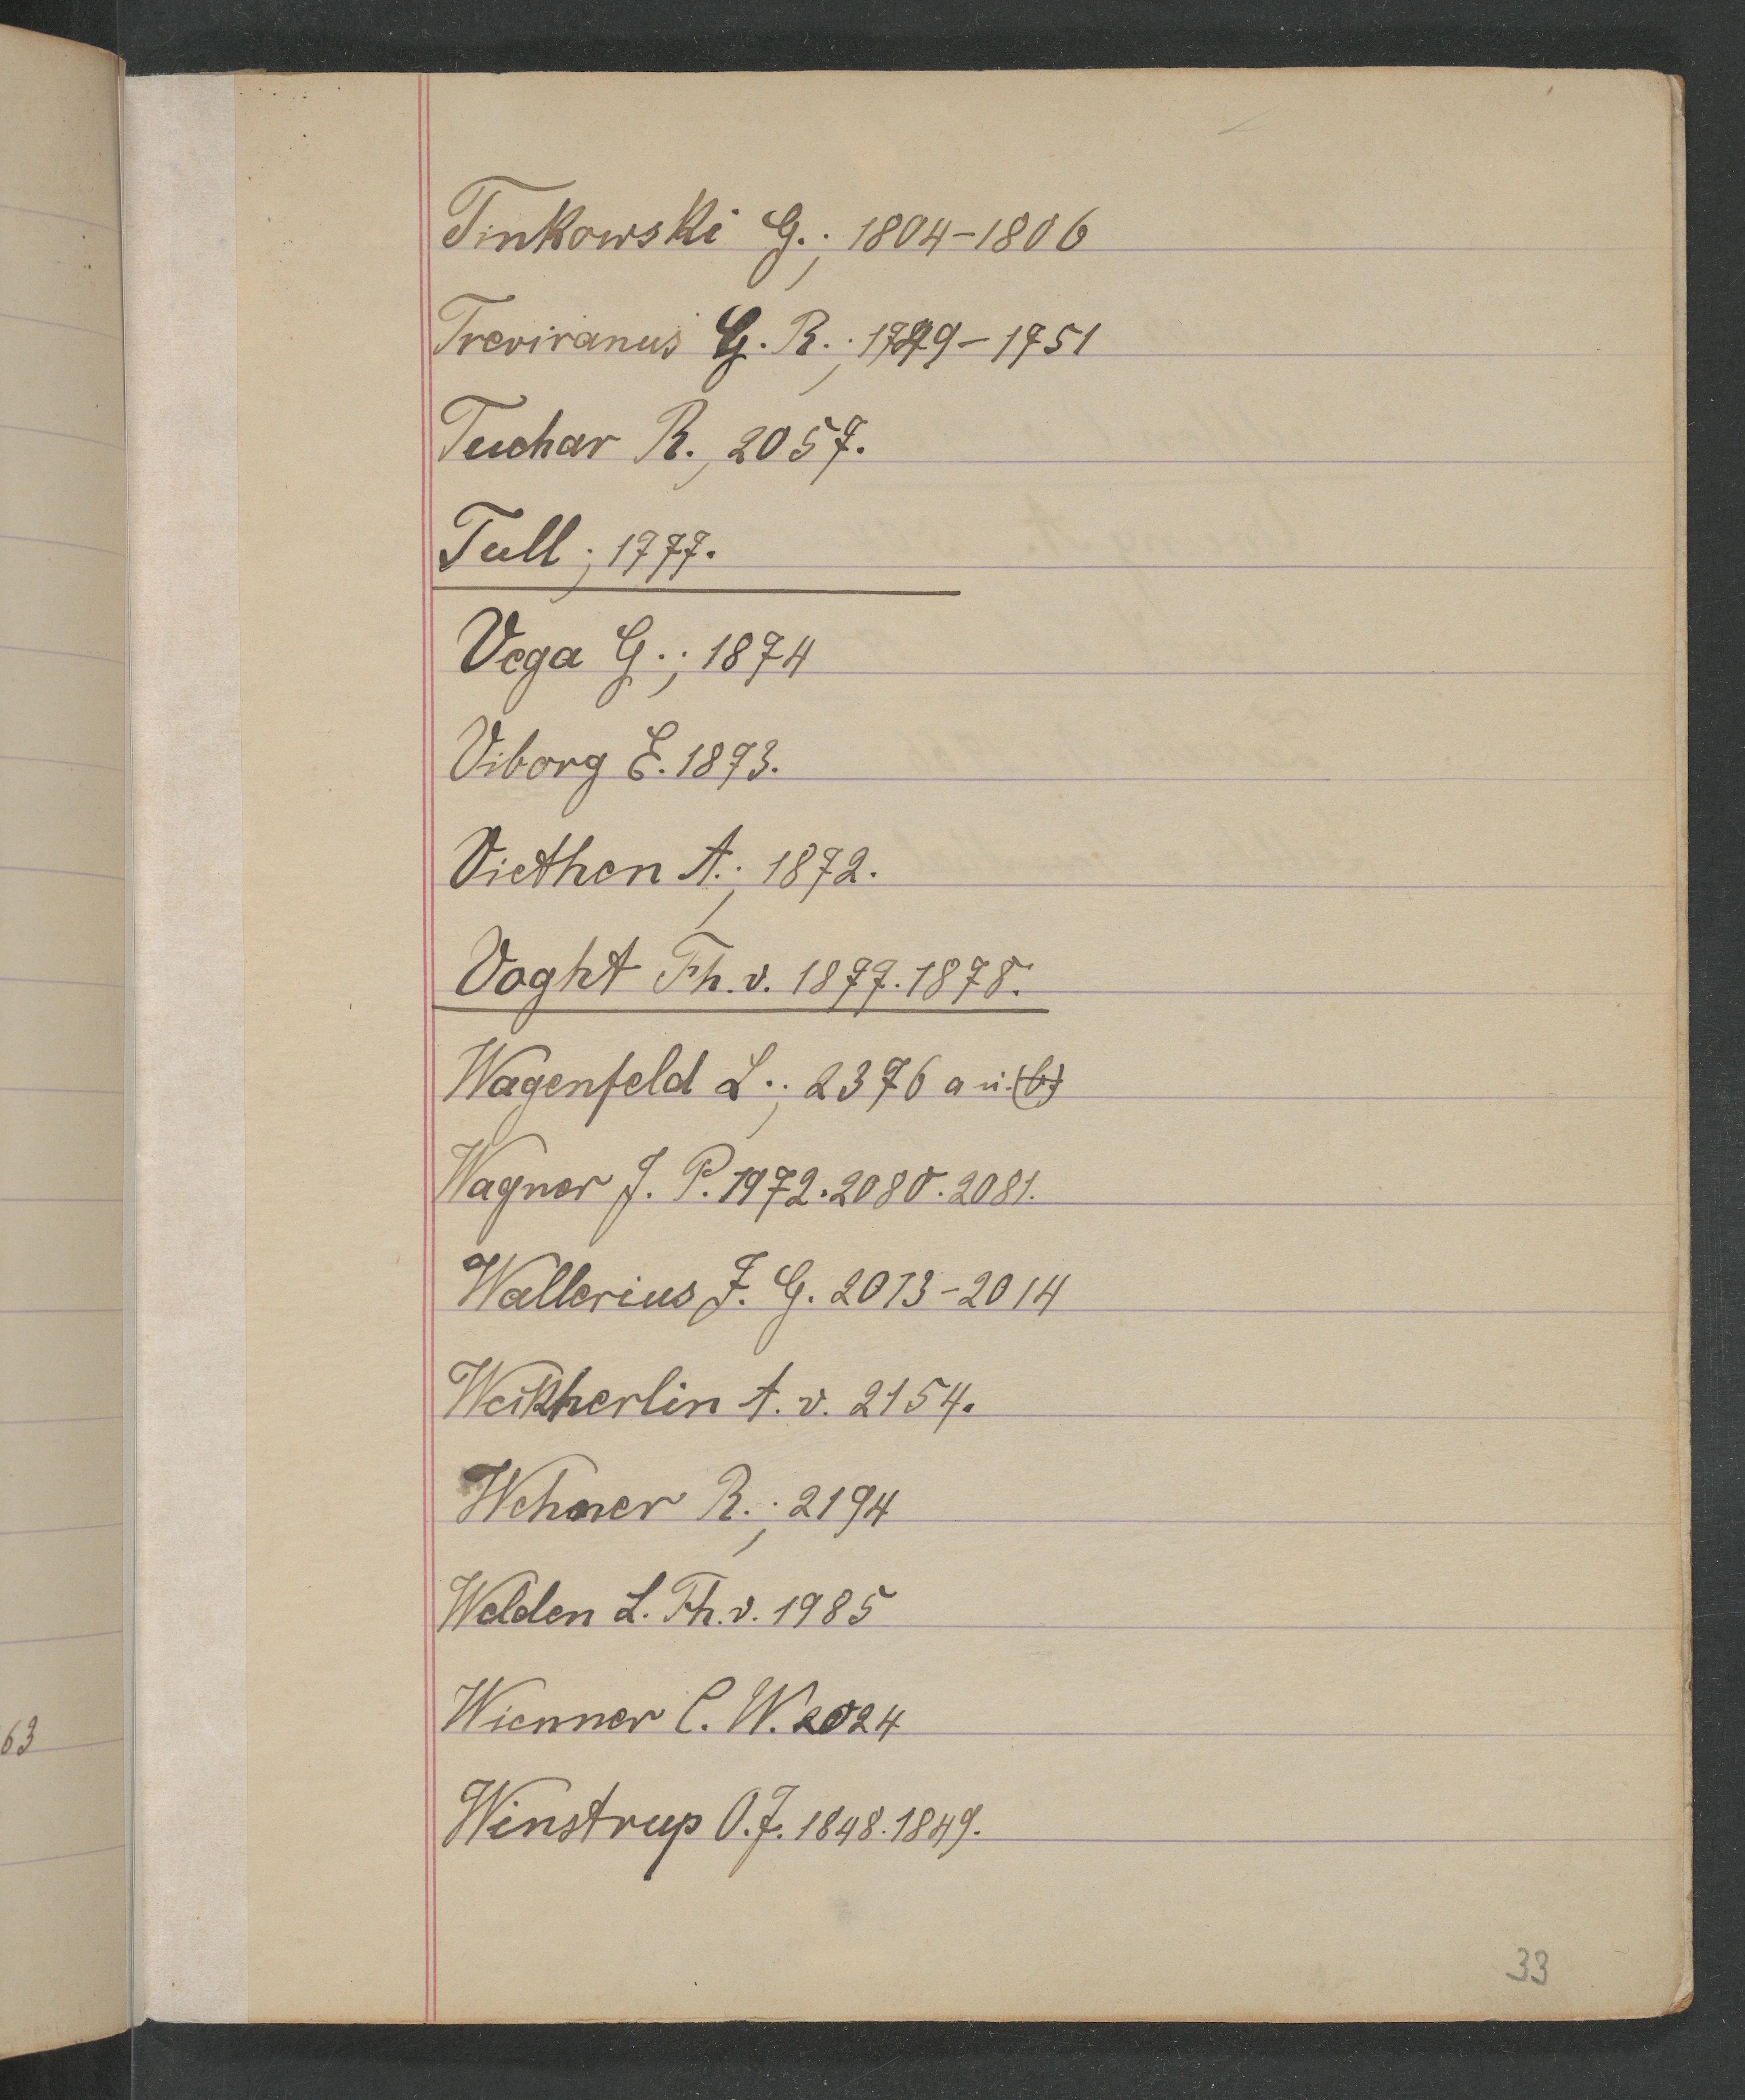 Tinkowski G.; 1804-1806
Treviranus G. R.; 1749-1751
Tuchar R., 2057.
Tull; 1777.
Vega G.; 1874
Viborg E. 1873.
Viethen A.; 1872.
Voght Fh. v. 1877. 1878.
Wagenfeld L.; 2376 a u. (b)
Wagner J. P. 1972. 2080. 2081.
Wallerius J. G. 2013-2014
Weikherlin A. v. 2154.
Wehner R.; 2194
Welden L. Fh. v. 1985
Wienner C. W. 2024
Winstrup O. J. 1848. 1849.
33
63